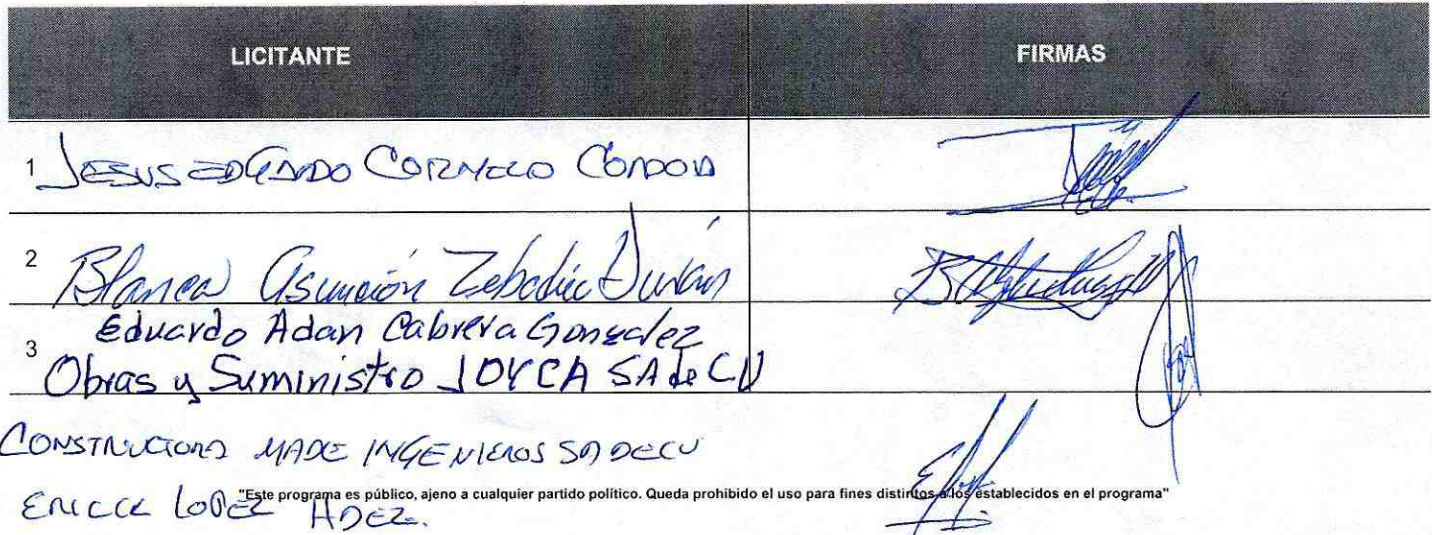 LICITANTE FIRMAS
1 JESUS EDGARDO CORNELIO CORDOVA
2 Blanca Asunción Zebadúa Durán
Eduardo Adan Cabrera Gonzalez
3
Obras y Suministro JOYCA SA de CV
CONSTRUCTORA MADE INGENIEROS SA DE CV
"Este programa es público, ajeno a cualquier partido político. Queda prohibido el uso para fines distintos a los establecidos en el programa"
ERICCK LOPEZ HDEZ.